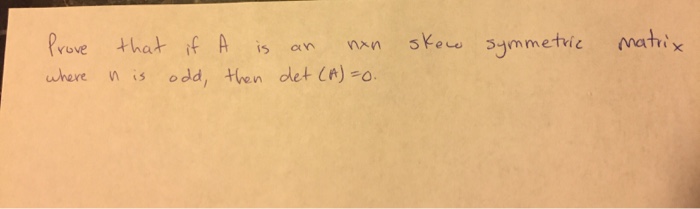 Prove that if A is an nxn skew symmetric matrix
where n is odd, then det (A)=0.